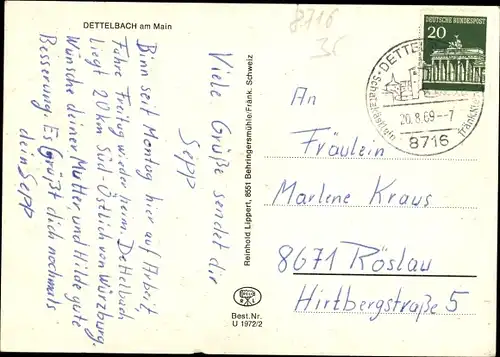 DETTELBACH am Main
Viele Grüße sendet dir
Sepp
Binn seit Montag hier auf Arbeit,
Fahre Freitag wieder heim. Dettelbach
liegt 20 km Süd-Östlich von Würzburg.
Wünsche deiner Mutter und Hilde gute
Besserung. Es Grüßt dich nochmals
dein Sepp
Reinhold Lippert, 8551 Behringersmühle/Fränk. Schweiz
Best.Nr.
U 1972/2
8716
35
DEUTSCHE BUNDESPOST
20
DETTEL
Schatzkästlein
20.8.69--7
8716
An
Fräulein
Marlene Kraus
8671 Röslau
Hirtbergstraße 5